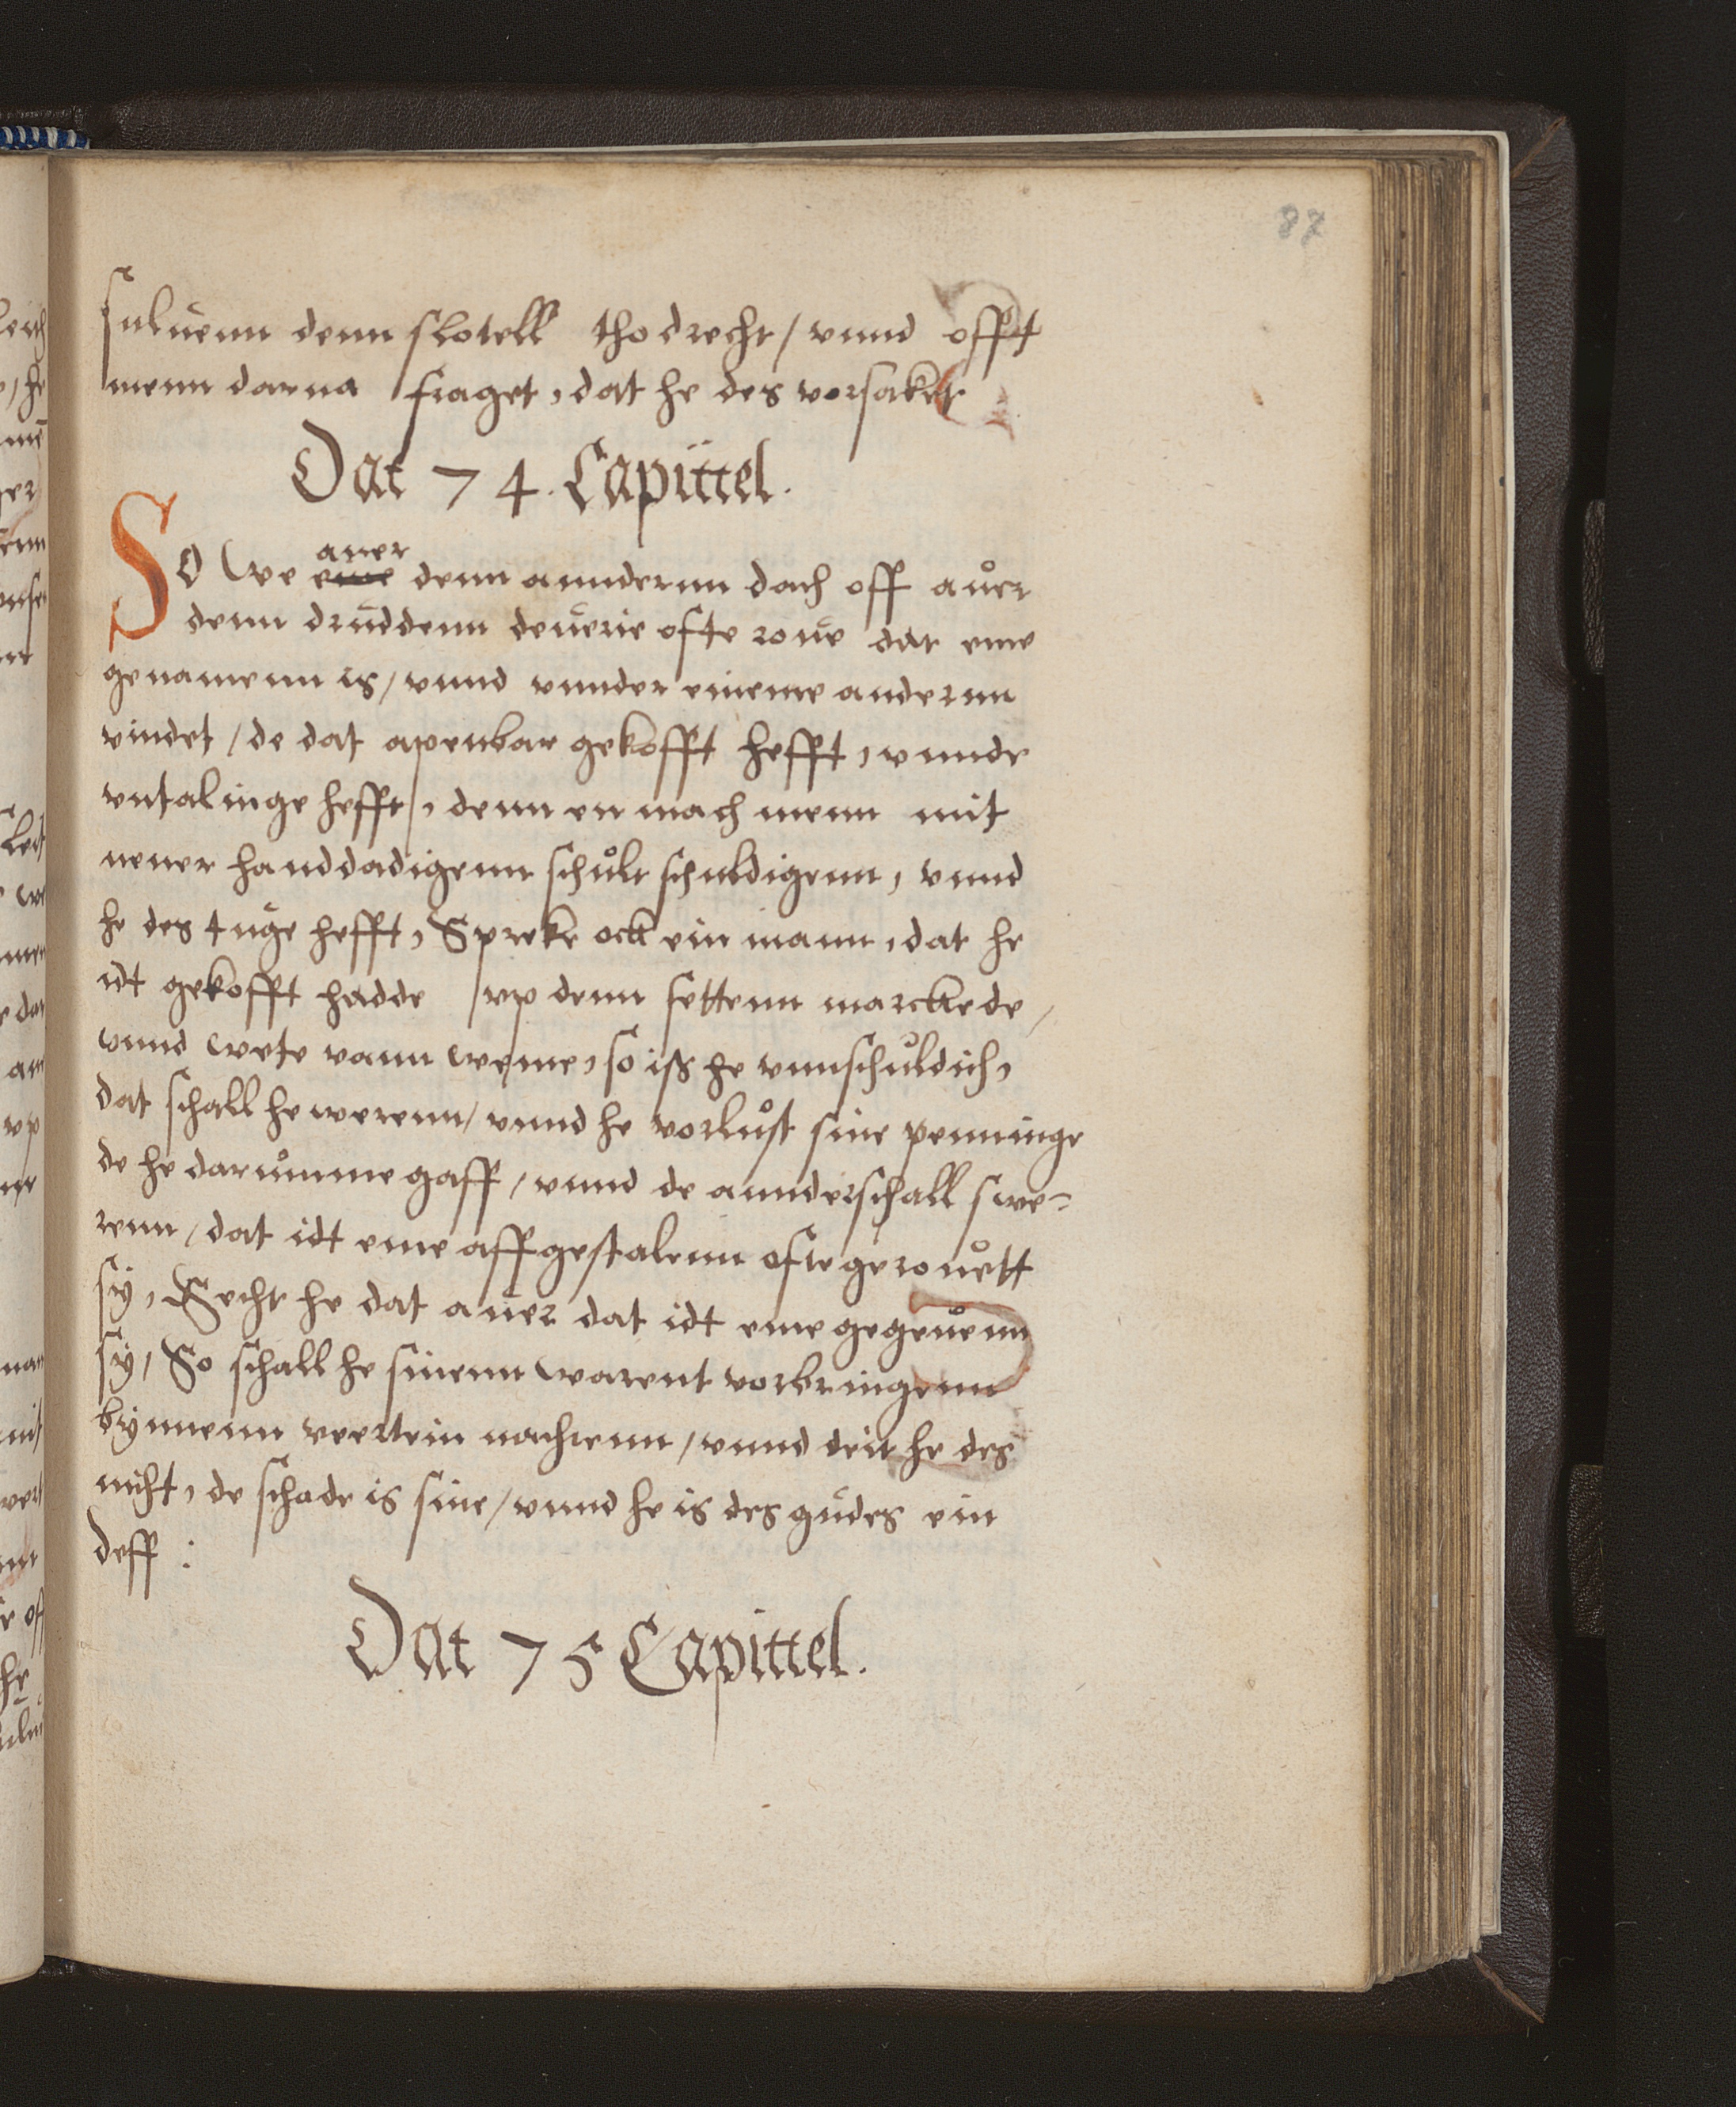 87
suluenn denn slotell tho drecht / vnnd offt
menn darna fraget, dat he des vorsaket
Dat 74. Capittel.
SO we auer eme denn anndernn dach off auer
denn druddenn deuerie ofte roue dat eme
genamenn is / vnnd vnnder eineme andernn
vindet / de dat apenbar gekofft hefft, vnnde
vntalinge hefft, denn en mach menn mit
nener handdadigenn schult schuldigenn, vnnd
he des tuge hefft, Spreke ock ein mann, dat he
idt gekofft hadde vp denn fettenn marckede /
vnnd wete vann weme, so iß he vnnschuldich,
dat schall he werenn / vnnd he vorlust sine penninge
de he darumme gaff / vnnd de annder schall swe=
renn / dat idt eme affgestalenn ofte gerouett
sÿ, Secht he dat auer dat idt eme gegeuenn
sÿ / So schall he sinenn warent vorbringenn
bÿnnenn veertein nachtenn / vnnd deit he des
nicht, de schade is sine / vnnd he is des gudes ein
deff :
Dat 75 Capittel.